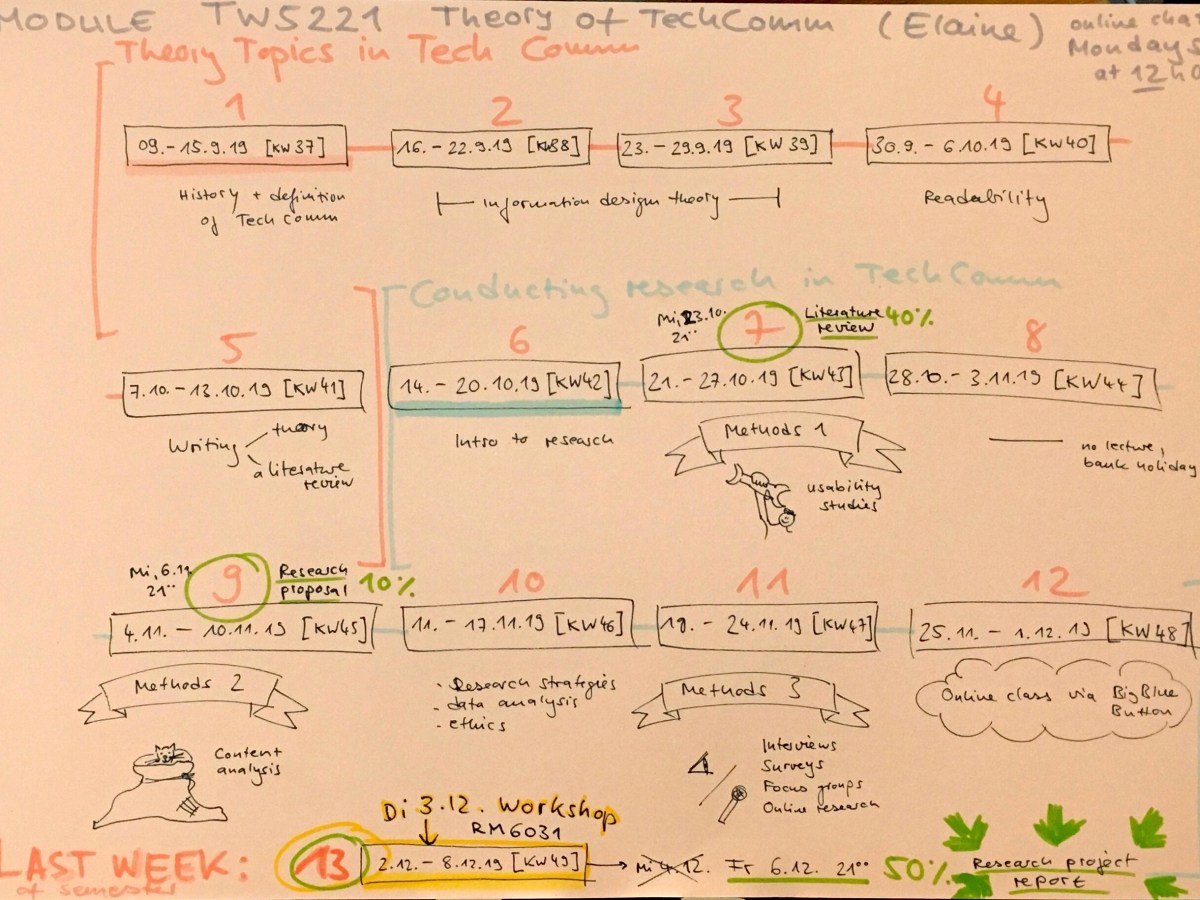 MODULE TW5221 Theory of TechComm (Elaine)
online cha
Mondays
at 12h0
Theory Topics in Tech Comm
1
2
3
4
09.-15.9.19 [KW37]
16.-22.9.19 [KW38]
23.-29.9.19 [KW39]
30.9.-6.10.19 [KW40]
History + definition
of Tech Comm
Information design theory
Readability
Conducting research in TechComm
5
6
Mi, 23.10.
21⁰⁰
7
Literature
review
40%
8
7.10.-13.10.19 [KW41]
14.-20.10.19 [KW42]
21.-27.10.19 [KW43]
28.10.-3.11.19 [KW44]
Writing
theory
a literature
review
Intro to research
Methods 1
usability
studies
no lecture,
bank holiday
Mi, 6.11
21⁰⁰
9
Research
proposal
10%
10
11
12
4.11.-10.11.19 [KW45]
11.-17.11.19 [KW46]
18.-24.11.19 [KW47]
25.11.-1.12.19 [KW48]
Methods 2
Content
analysis
· Research strategies
- data analysis
- ethics
Methods 3
Interviews
Surveys
Focus groups
Online research
Online class via BigBlue
Button
Di 3.12. Workshop
RM6031
LAST WEEK:
of semester
13
2.12.-8.12.19 [KW49]
Mi 4.12.
Fr 6.12. 21⁰⁰
50%
Research project
report